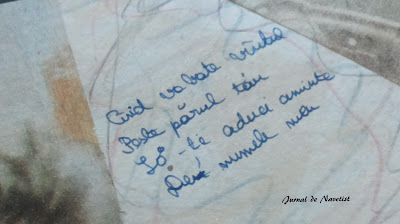 Cînd va bate vîntul
Peste părul tău
Să-ți aduci aminte
De numele meu
Jurnal de Navetist